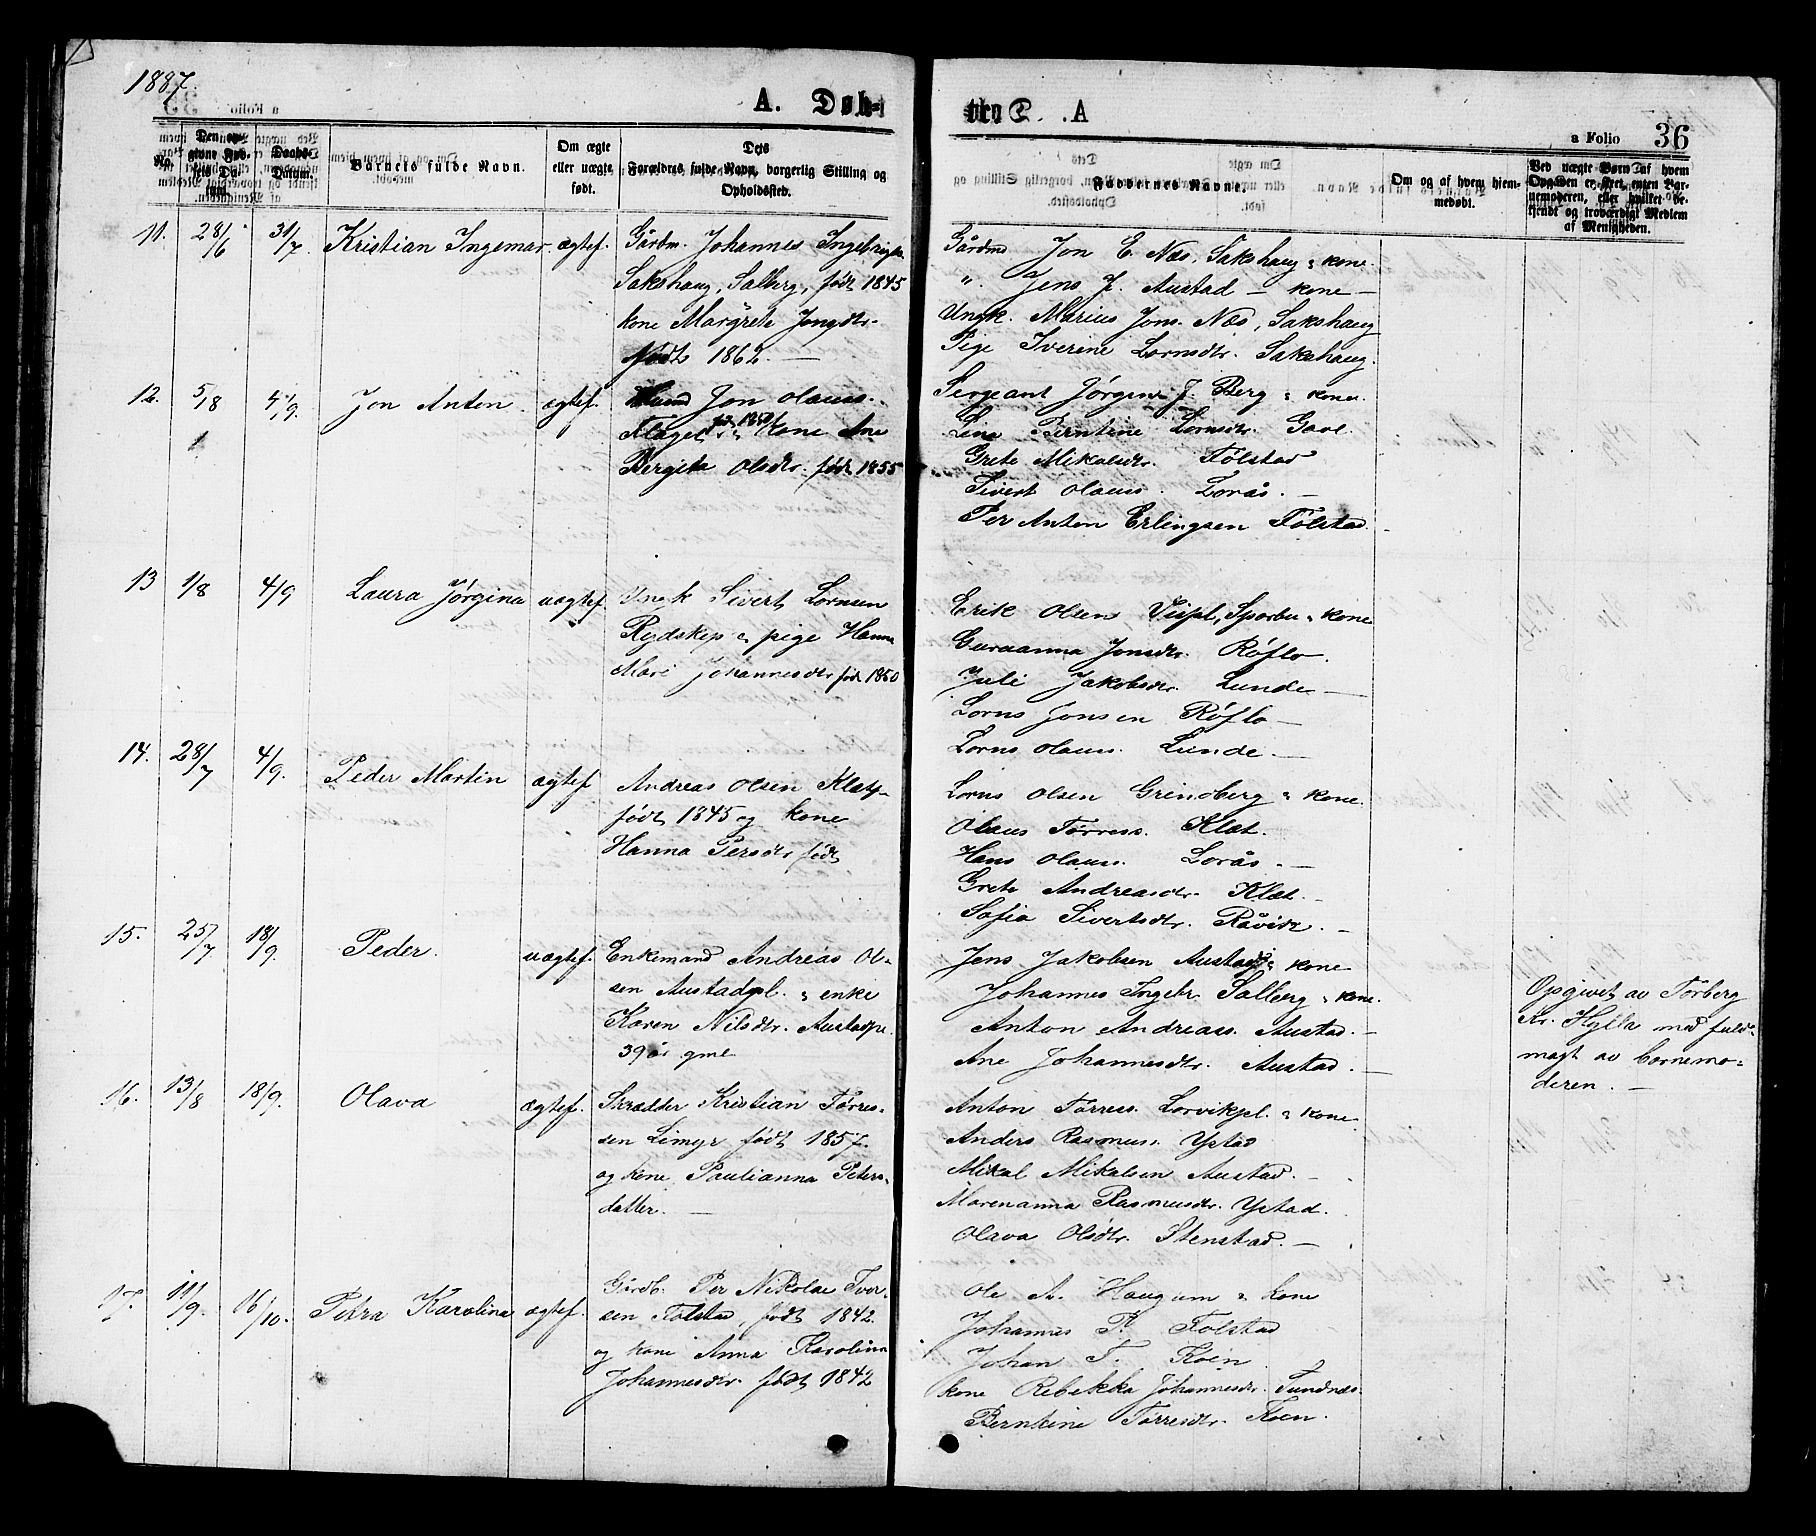 1887.
A. Døb-
te.
a Folio 36
No.
Den opgivne Fødsels Datum.
Daabs-Datum.
Barnets fulde Navn.
Om ægte eller uægte født.
Dets Forældres fulde Navn, borgerlig Stilling og Opholdssted.
Faddernes Navne.
Om og af hvem hjemmedøbt.
Ved uægte Børn af hvem Opgaven er sket, enten Barnemoderen, eller hvilket bekjendt og troværdigt Medlem af Menigheden.
11. 28/6 31/7 Kristian Ingemar. ægtef.
Gårdm. Johannes Ingebrigts.
Sakshaug, Salberg, født 1845
kone Margrete Jonsdtr.
født 1862. —
Gårdm Jon E. Næs, Sakshaug & kone.
". Jens J. Austad — kone —
Ungk. Marius Jons. Næs, Sakshaug
Pige Iverine Lornsdtr. Sakshaug.
12. 5/8 4/9. Jon Anton. ægtef.
Jon Olaus.
kone Ane
Bergita Olsdtr. født 1855
Sergeant Jørgen J. Berg & kone.
Line Berntine Lornsdtr. Gavl.
Grete Mikalsdtr. Følstad
Sivert Olaus. Lorås. —
Per Anton Erlingsen Følstad.
13 1/8 4/9 Laura Jørgina uægtef.
Ungk Sivert Lornsen
Rydskip & pige Hanna
Mari Johannesdtr født 1860
Erik Olsen Vispl, Sparbu & kone
Guruanna Jonsdtr. Røflo.
Juli Jakobsdtr. Lunde —
Lorns Jonsen Røflo —
Lorns Olaus. Lunde. —
14. 28/7 4/9. Peder Martin ægtef
Andreas Olsen Klæt,
født 1845 og kone
Hanna Persdtr født
Lorns Olsen Grindberg & kone.
Olaus Tørress. Klæt.
Hans Olaus. Lorås. —
Grete Andreasdtr. Klæt. —
Sofia Sivertsdtr. Råvik. —
15. 25/7 18/9. Peder. uægtef.
Enkemand Andreas Ol-
sen Austadpl. & enke
Karen Nilsdtr. Austadpl.
39 år gml
Jens Jakobsen Austad & kone
Johannes Ingebr. Salberg & kone.
Anton Andreass. Austad. —
Ane Johannesdtr. Austad. —
Opgivet av Torberg
Kr. Hylla med fuld-
magt av barnemo-
deren. —
16. 13/8 18/9. Olava ægtef.
Skrædder Kristian Tørres-
sen Limyr født 1857.
og kone Paulianna Peters-
datter. —
Anton Tørress. Lorvikpl. & kone.
Anders Rasmus. Ystad
Mikal Mikalsen Austad. —
Marenanna Rasmusdtr. Ystad.
Olava Olsdtr. Stenstad. —
17. 11/9. 16/10. Petra Karolina ægtef.
Gårdb. Per Nikolai Iver-
sen Følstad, født 1842.
og kone Anna Karolina
Johannesdtr. født 1842
Ole A. Haugum & kone
Johannes P. Følstad
Johan T. Koen.
kone Rebekka Johannesdtr. Sundnæs.
Berntine Tørresdtr. Koen.